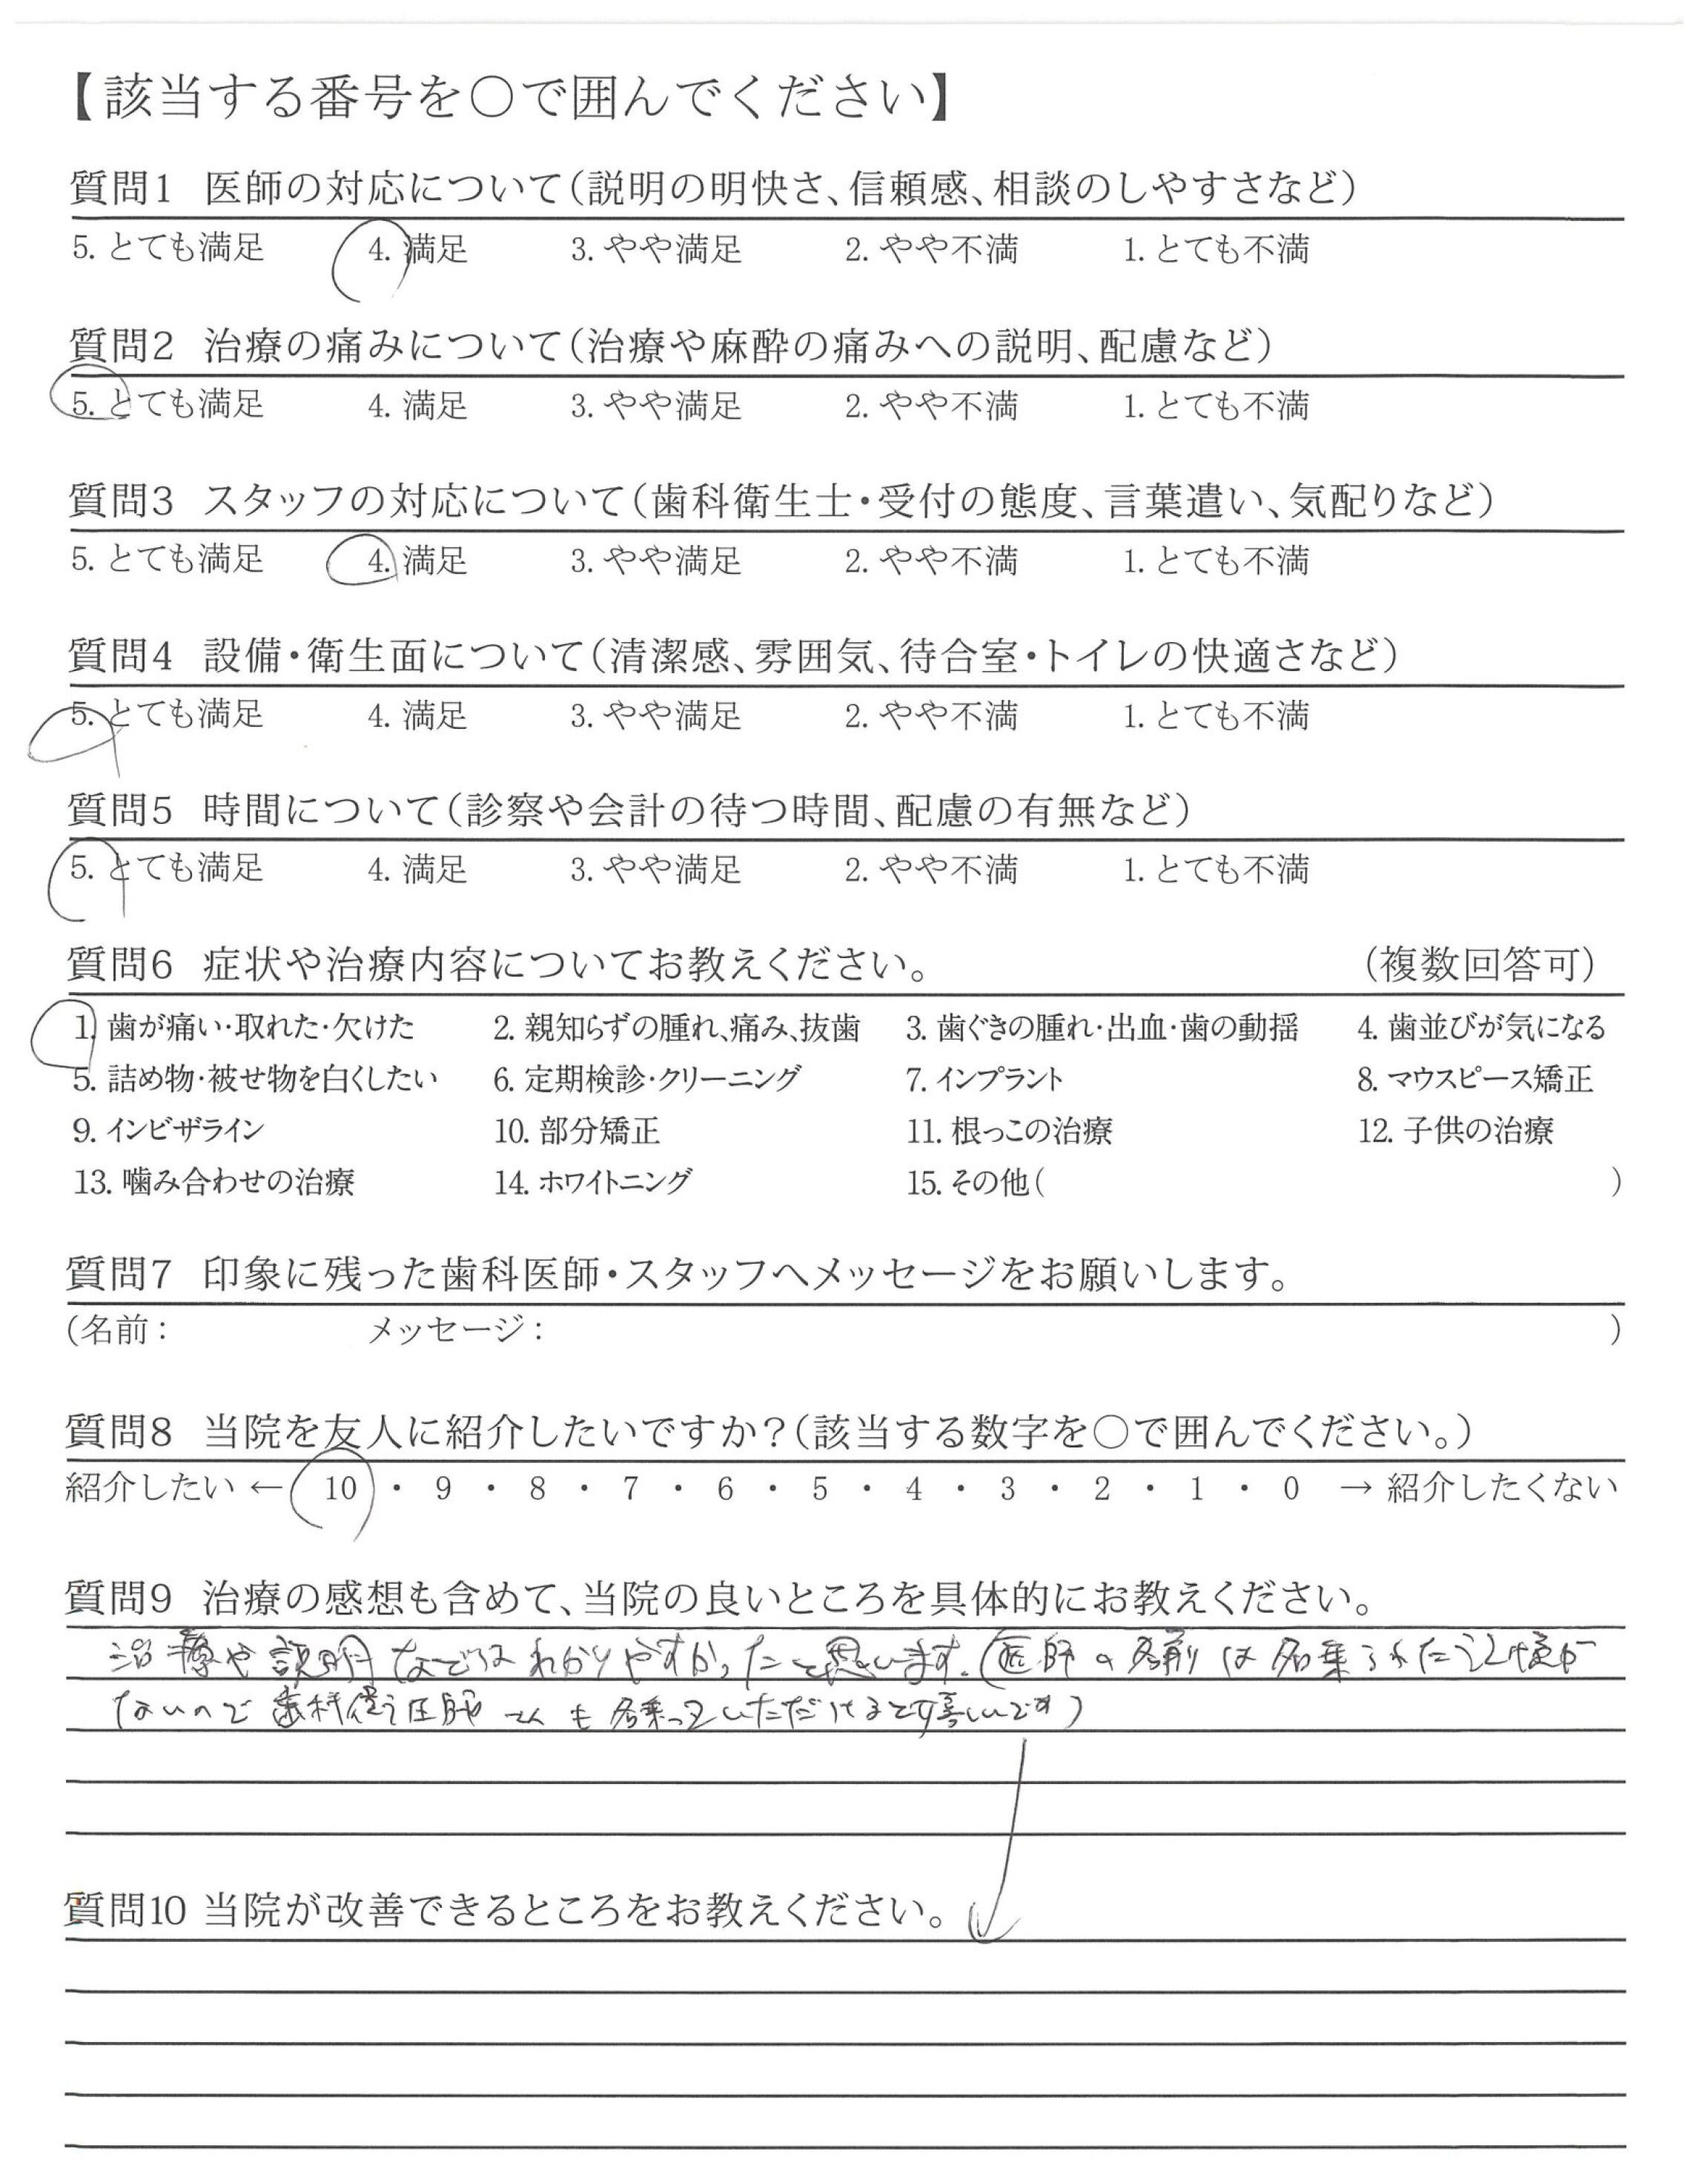 【該当する番号を○で囲んでください】
質問1 医師の対応について(説明の明快さ、信頼感、相談のしやすさなど)
5. とても満足 4. 満足 3. やや満足 2. やや不満 1. とても不満
質問2 治療の痛みについて(治療や麻酔の痛みへの説明、配慮など)
5. とても満足 4. 満足 3. やや満足 2. やや不満 1. とても不満
質問3 スタッフの対応について(歯科衛生士・受付の態度、言葉遣い、気配りなど)
5. とても満足 4. 満足 3. やや満足 2. やや不満 1. とても不満
質問4 設備・衛生面について(清潔感、雰囲気、待合室・トイレの快適さなど)
5. とても満足 4. 満足 3. やや満足 2. やや不満 1. とても不満
質問5 時間について(診察や会計の待つ時間、配慮の有無など)
5. とても満足 4. 満足 3. やや満足 2. やや不満 1. とても不満
質問6 症状や治療内容についてお教えください。 (複数回答可)
1. 歯が痛い・取れた・欠けた 2. 親知らずの腫れ、痛み、抜歯 3. 歯ぐきの腫れ・出血・歯の動揺 4. 歯並びが気になる
5. 詰め物・被せ物を白くしたい 6. 定期検診・クリーニング 7. インプラント 8. マウスピース矯正
9. インビザライン 10. 部分矯正 11. 根っこの治療 12. 子供の治療
13. 噛み合わせの治療 14. ホワイトニング 15. その他( )
質問7 印象に残った歯科医師・スタッフへメッセージをお願いします。
(名前: メッセージ: )
質問8 当院を友人に紹介したいですか?(該当する数字を○で囲んでください。)
紹介したい ← 10 ・ 9 ・ 8 ・ 7 ・ 6 ・ 5 ・ 4 ・ 3 ・ 2 ・ 1 ・ 0 → 紹介したくない
質問9 治療の感想も含めて、当院の良いところを具体的にお教えください。
治療や説明などはわかりやすかったと思います。(医師の名前は名乗られた記憶が
ないので歯科 さんも名乗っていただけると嬉しいです)
質問10 当院が改善できるところをお教えください。